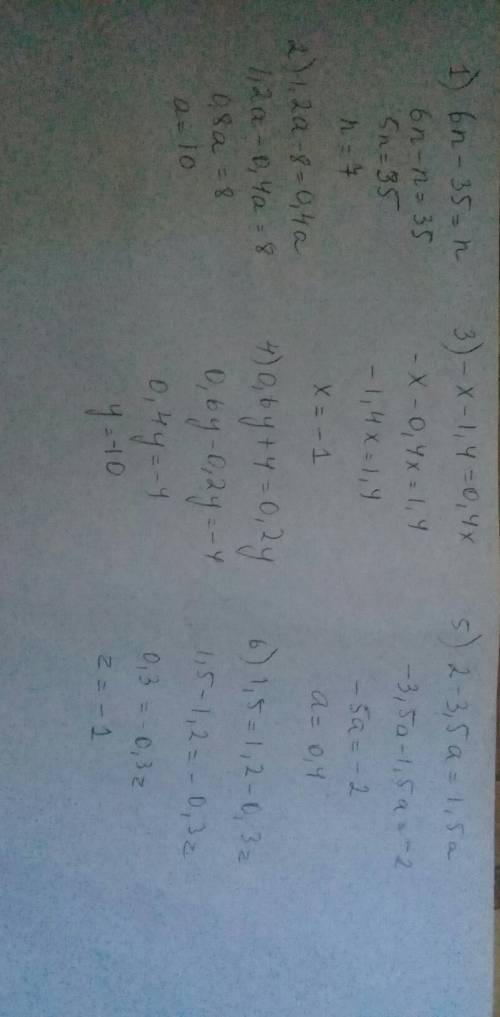 1) 6n - 35 = n
6n - n = 35
5n = 35
n = 7
2) 1,2a - 8 = 0,4a
1,2a - 0,4a = 8
0,8a = 8
a = 10
3) -x - 1,4 = 0,4x
-x - 0,4x = 1,4
-1,4x = 1,4
x = -1
4) 0,6y + 4 = 0,2y
0,6y - 0,2y = -4
0,4y = -4
y = -10
5) 2 - 3,5a = 1,5a
-3,5a - 1,5a = -2
-5a = -2
a = 0,4
6) 1,5 = 1,2 - 0,3z
1,5 - 1,2 = -0,3z
0,3 = -0,3z
z = -1